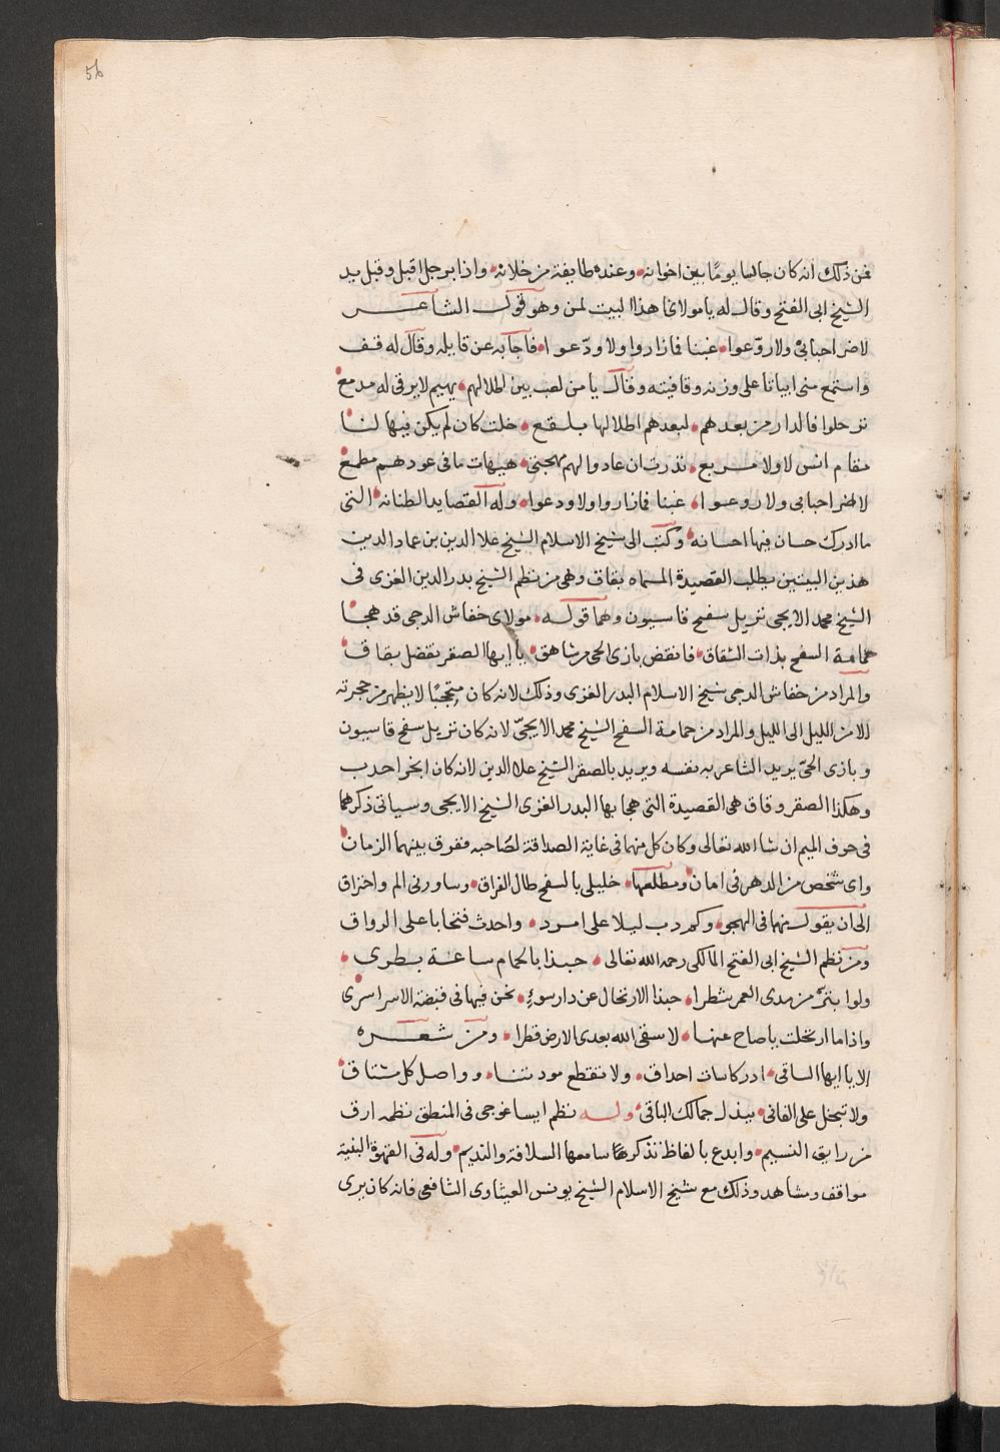 56
فمن ذلك انه كان جالسا يوما بين اخوانه وعنده طايفة من خلانه واذا برجل اقبل وقبل يد
الشيخ ابى الفتح وقال له يا مولانا هذا البيت لمن وهو قول الشاعر
لاضر احبابى ولا روّعوا غبنا فما زاروا ولا ودّعوا فاجابه عن قايله وقال له قف
واستمع منى ابياتا على وزنه وقافيته وقال يا من لصب بين اطلالهم يهيم لا يرقى له مدمع
ترحلوا فالدار من بعدهم لبعدهم اطلالها بلقع خلت كان لم يكن فيها لنا
مقام انس لا ولا مربع نذرت ان عادوا لهم مهجتى هيهات ما فى عودهم مطمع
لا ضر احبابى ولا روعوا غبنا فما زاروا ولا ودعوا وله القصايد الطنانه التى
ما ادرك حسان فيها احسانه وكتب الى شيخ الاسلام الشيخ علا الدين بن عماد الدين
هذين البيتين يطلب القصيدة المسماه بقاق وهى من نظم الشيخ بدر الدين الغزى فى
الشيخ محمد الايجى نزيل سفح قاسيون وهما قوله مولاى خفاش الدجى قد هجا
حمامة السفح بذات الشقاق فانقض بازى الحى من شاهق يا ايها الصقر تفضل بقاق
والمراد من خفاش الدجى شيخ الاسلام البدر الغزى وذلك لانه كان محتجبا لا يظهر من حجرته
الا من الليل الى الليل والمراد من حمامة السفح الشيخ محمد الايجىّ لانه كان نزيل سفح قاسيون
وبازى الحىّ يريد الشاعر به نفسه ويريد بالصقر الشيخ علا الدين لانه كان ابخر احدب
وهكذا الصقر وقاق هى القصيدة التى هجا بها البدر الغزى الشيخ الايجى وسياتى ذكرهما
فى حرف الميم ان شا الله تعالى وكان كل منهما فى غاية الصداقة لصاحبه ففرق بينهما الزمان
واى شخص من الدهر فى امان ومطلعها خليلى بالسفح طال الفراق وساورنى الم واحتراق
الى ان يقول منها فى الهجو وكم دب ليلا على امرد واحدث فتحا با على الرواق
ومن نظم الشيخ ابى الفتح المالكى رحمه الله تعالى حبذا بالحمام ساعة بطرى
ولوا بتر من مدى العمر شطرا حبذا الارتحال عن دار سوءٍ نحن فيها فى قبضة الاسر اسرى
واذا ما ارتحلت يا صاح عنها لا سقى الله بعدى الارض قطرا ومن شعره
الا يا ايها الساقى ادر كاسات احداق ولا تقطع مودتنا وواصل كل مشتاق
ولا تبخل على الفانى ببذل جمالك الباقى وله نظم ايساغوجى فى المنطق نظمه ارق
من رايق النسيم وابدع بالفاظ تذكر سامعها السلافة والنديم وله فى القهوة البنية
مواقف ومشاهد وذلك مع شيخ الاسلام الشيخ يونس العيثاوى الشافعى فانه كان يرى